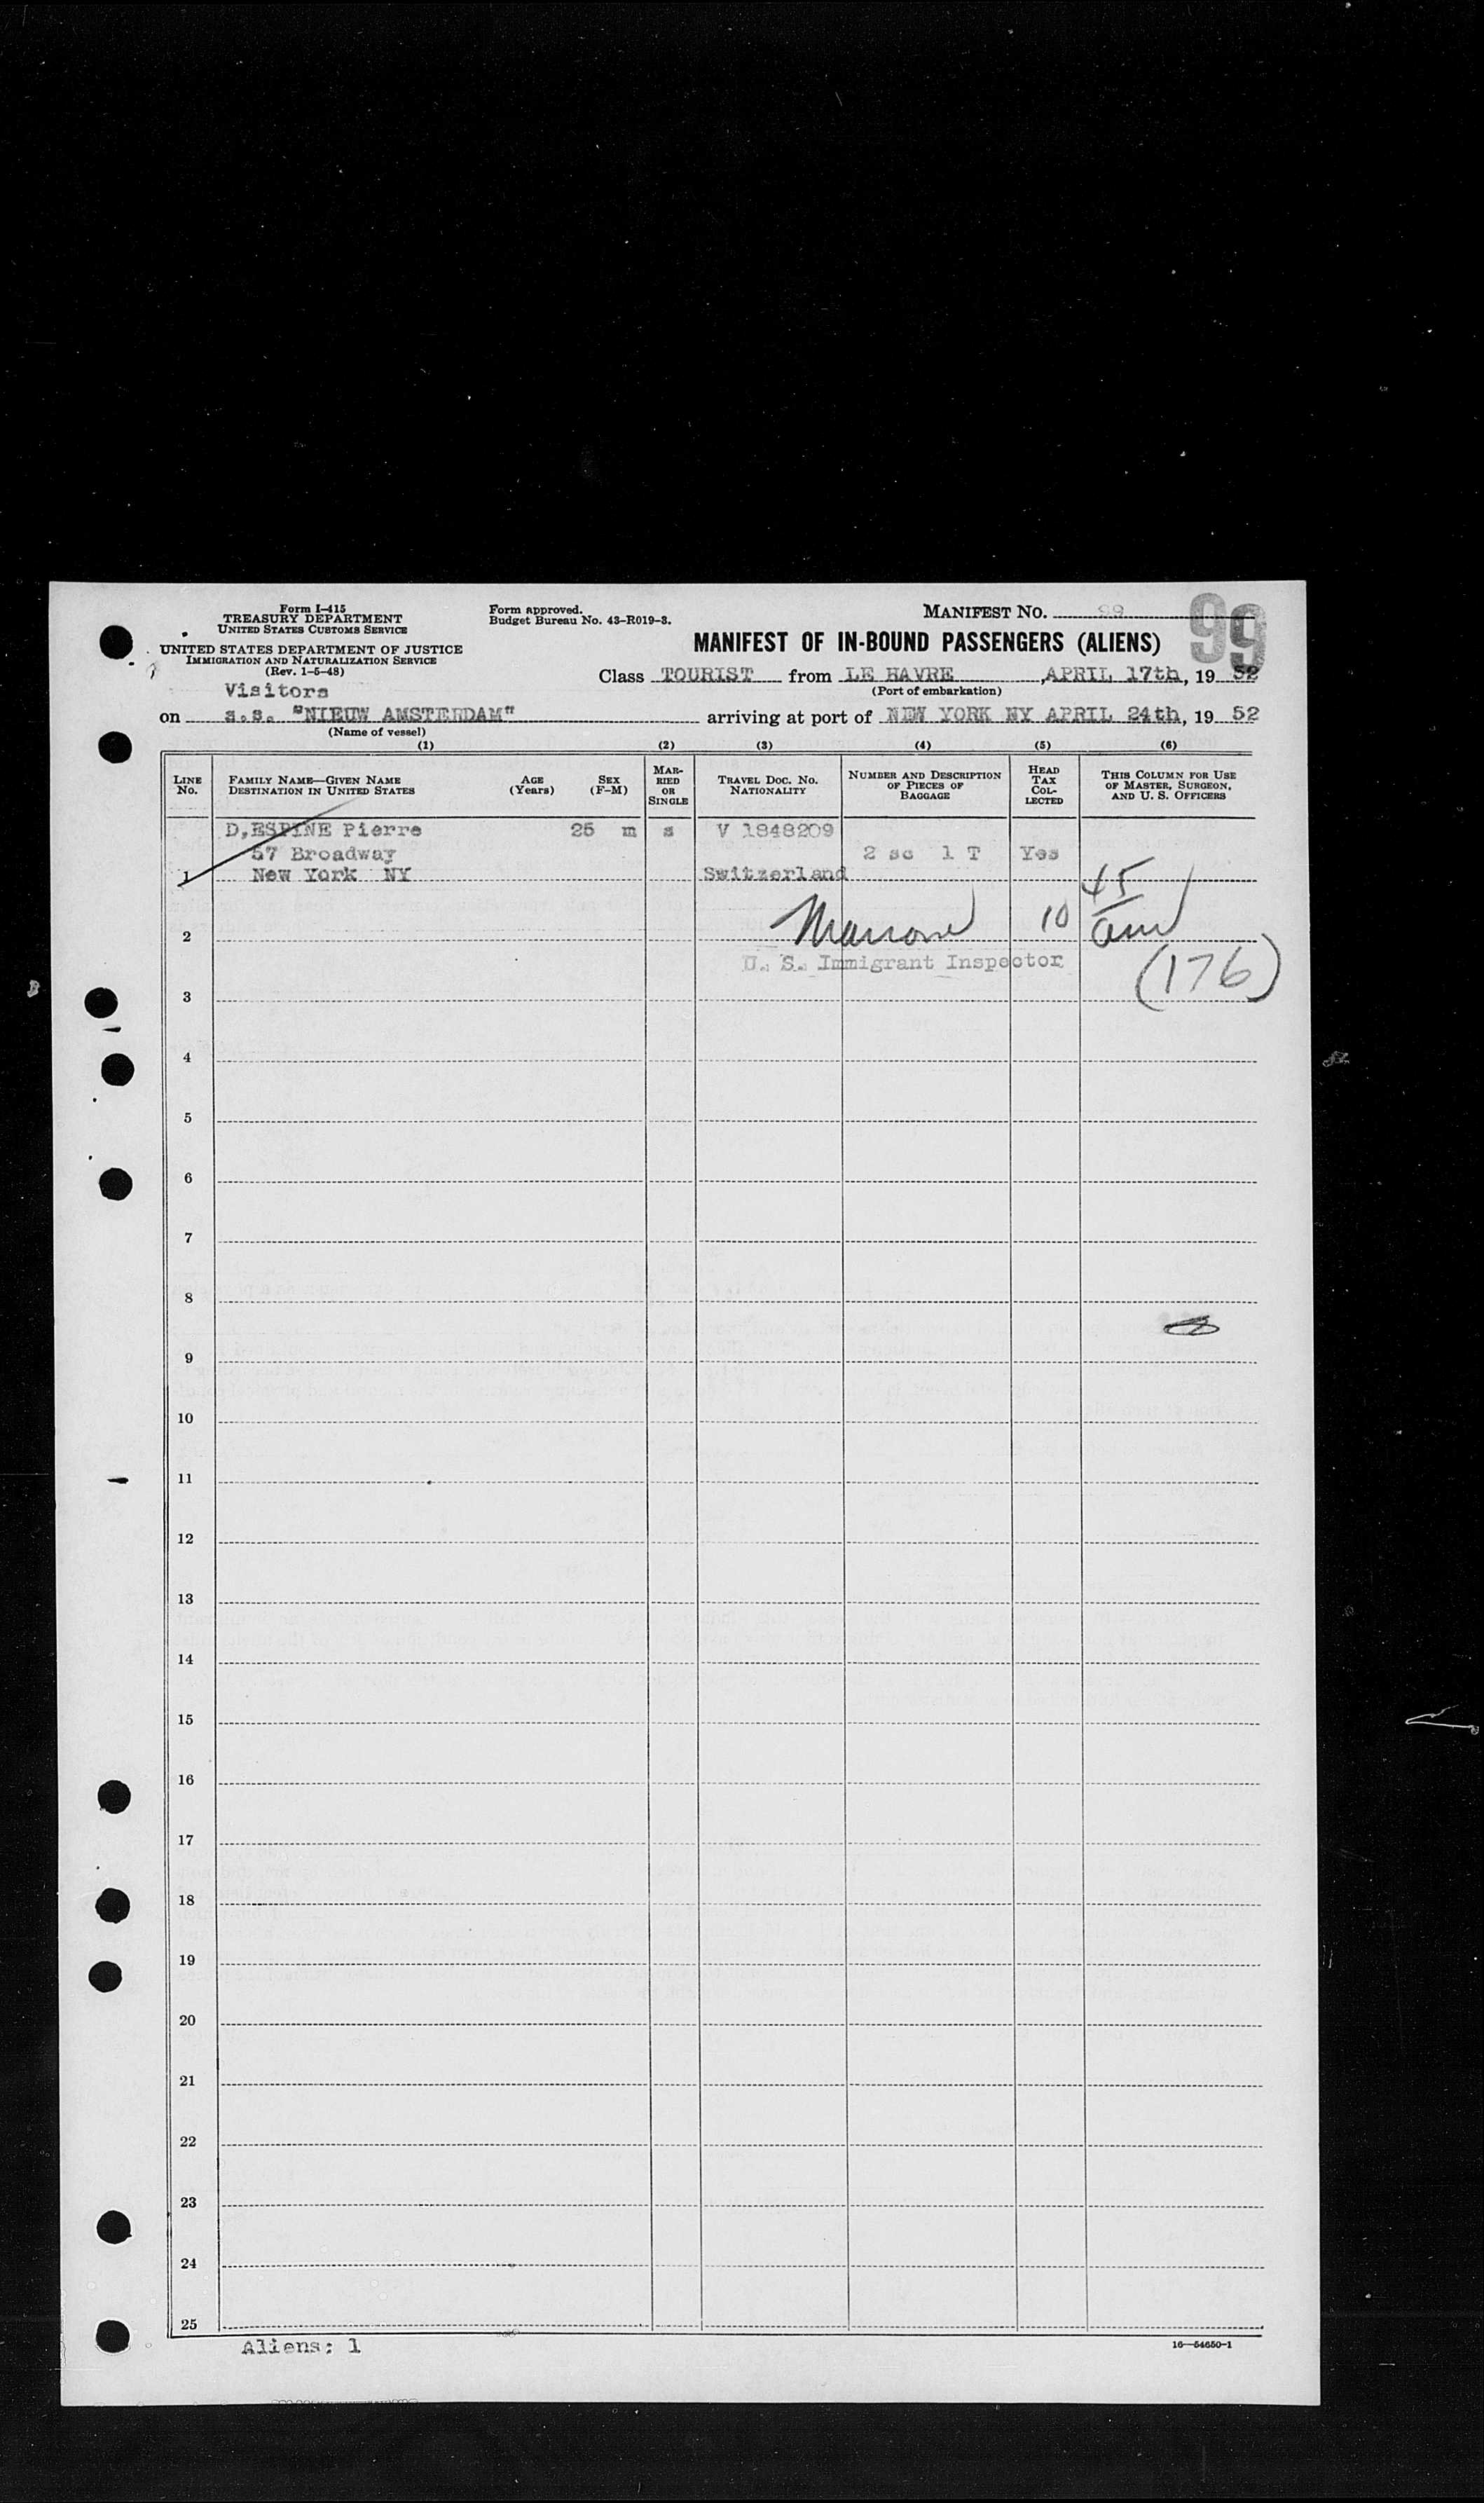 Form I-415
TREASURY DEPARTMENT
UNITED STATES CUSTOMS SERVICE
UNITED STATES DEPARTMENT OF JUSTICE
IMMIGRATION AND NATURALIZATION SERVICE
(Rev. 1-5-48)
Form approved.
Budget Bureau No. 43-R019-3.
MANIFEST NO. 99
99
MANIFEST OF IN-BOUND PASSENGERS (ALIENS)
Class TOURIST from LE HAVRE, APRIL 17th, 1952
(Port of embarkation)
Visitors
on s.s. "NIEUW AMSTERDAM" arriving at port of NEW YORK NY APRIL 24th, 1952
(Name of vessel)
(1) (2) (3) (4) (5) (6)
LINE NO.
FAMILY NAME—GIVEN NAME
DESTINATION IN UNITED STATES
AGE (Years)
SEX (F-M)
MARRIED OR SINGLE
TRAVEL DOC. NO. NATIONALITY
NUMBER AND DESCRIPTION OF PIECES OF BAGGAGE
HEAD TAX COLLECTED
THIS COLUMN FOR USE OF MASTER, SURGEON, AND U. S. OFFICERS
D,ESPINE Pierre 25 m s V 1848209
57 Broadway 2 sc 1 T Yes
1 New York NY Switzerland
45
10
2
U. S. Immigrant Inspector
(176)
3
4
5
6
7
8
9
10
11
12
13
14
15
16
17
18
19
20
21
22
23
24
25
Aliens: 1
16—54650-1